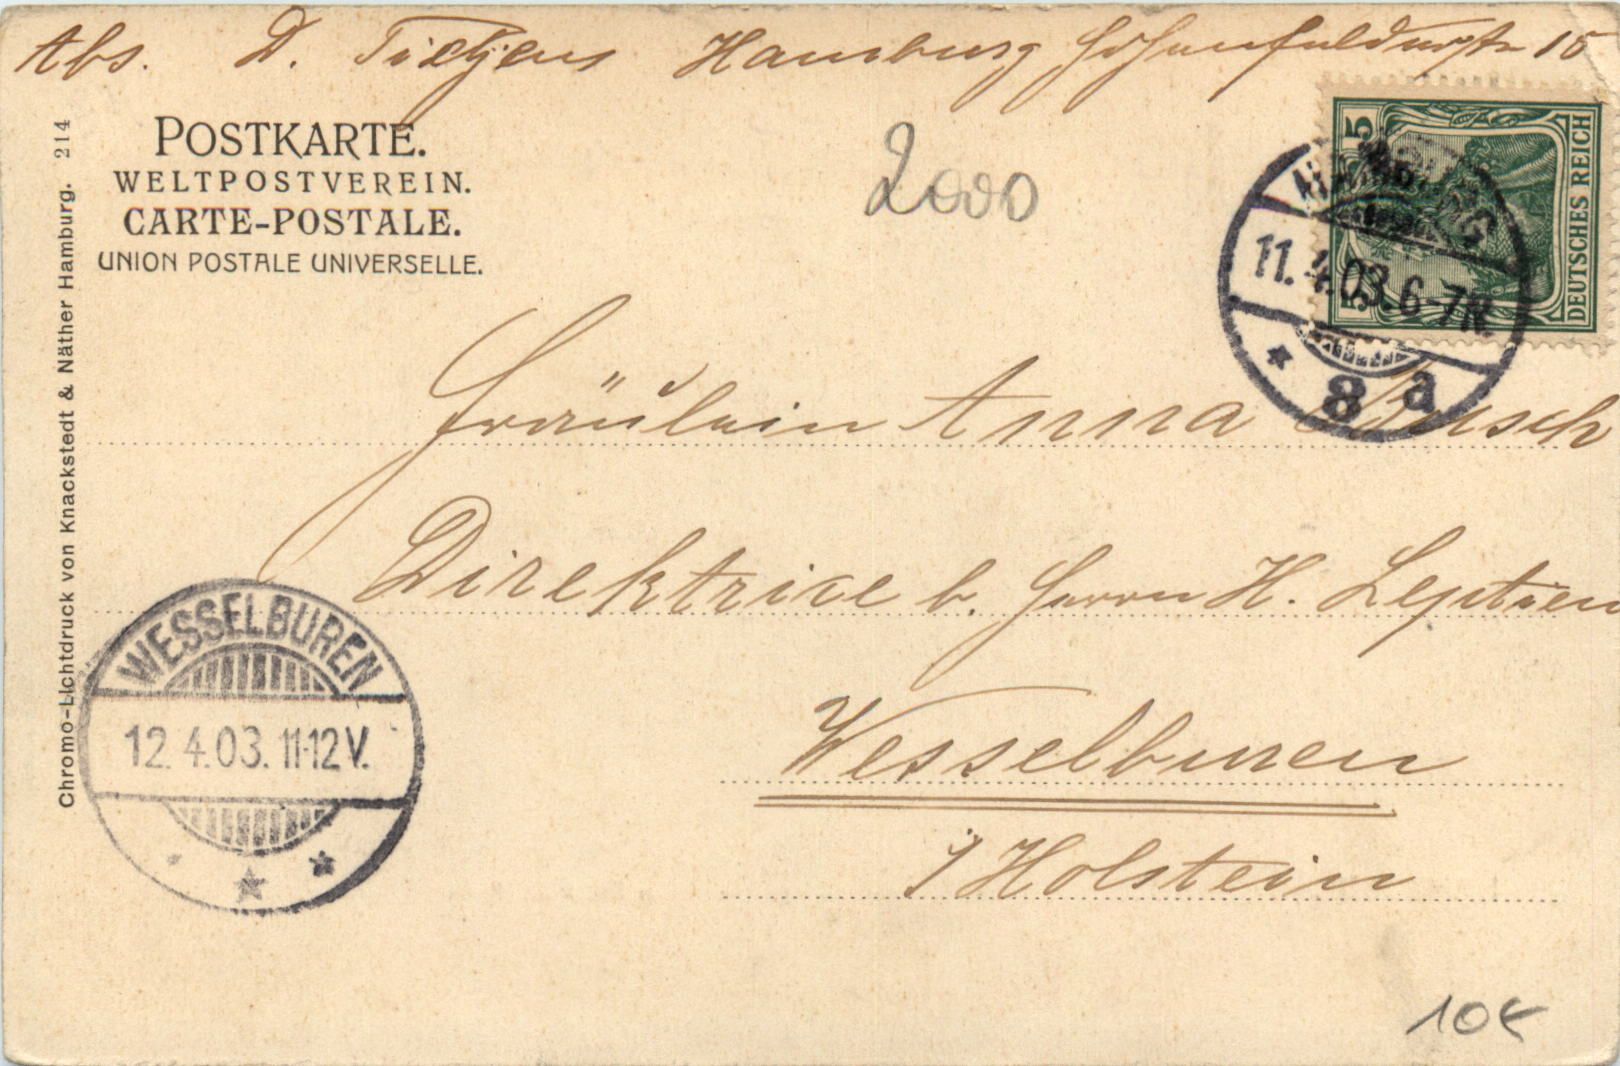 Abs. D. Tietjens Hamburg 15
POSTKARTE.
WELTPOSTVEREIN.
CARTE-POSTALE.
UNION POSTALE UNIVERSELLE.
Chromo-Lichtdruck von Knackstedt & Näther Hamburg. 214
2000
5 5
DEUTSCHES REICH
HAMBURG
11.4.03.6-7N.
* 8 a
Fräulein Anna Busch
Direktrice b. Herrn H. Leptien
Wesselburen
i/Holstein
WESSELBUREN
12.4.03.11-12V.
10€